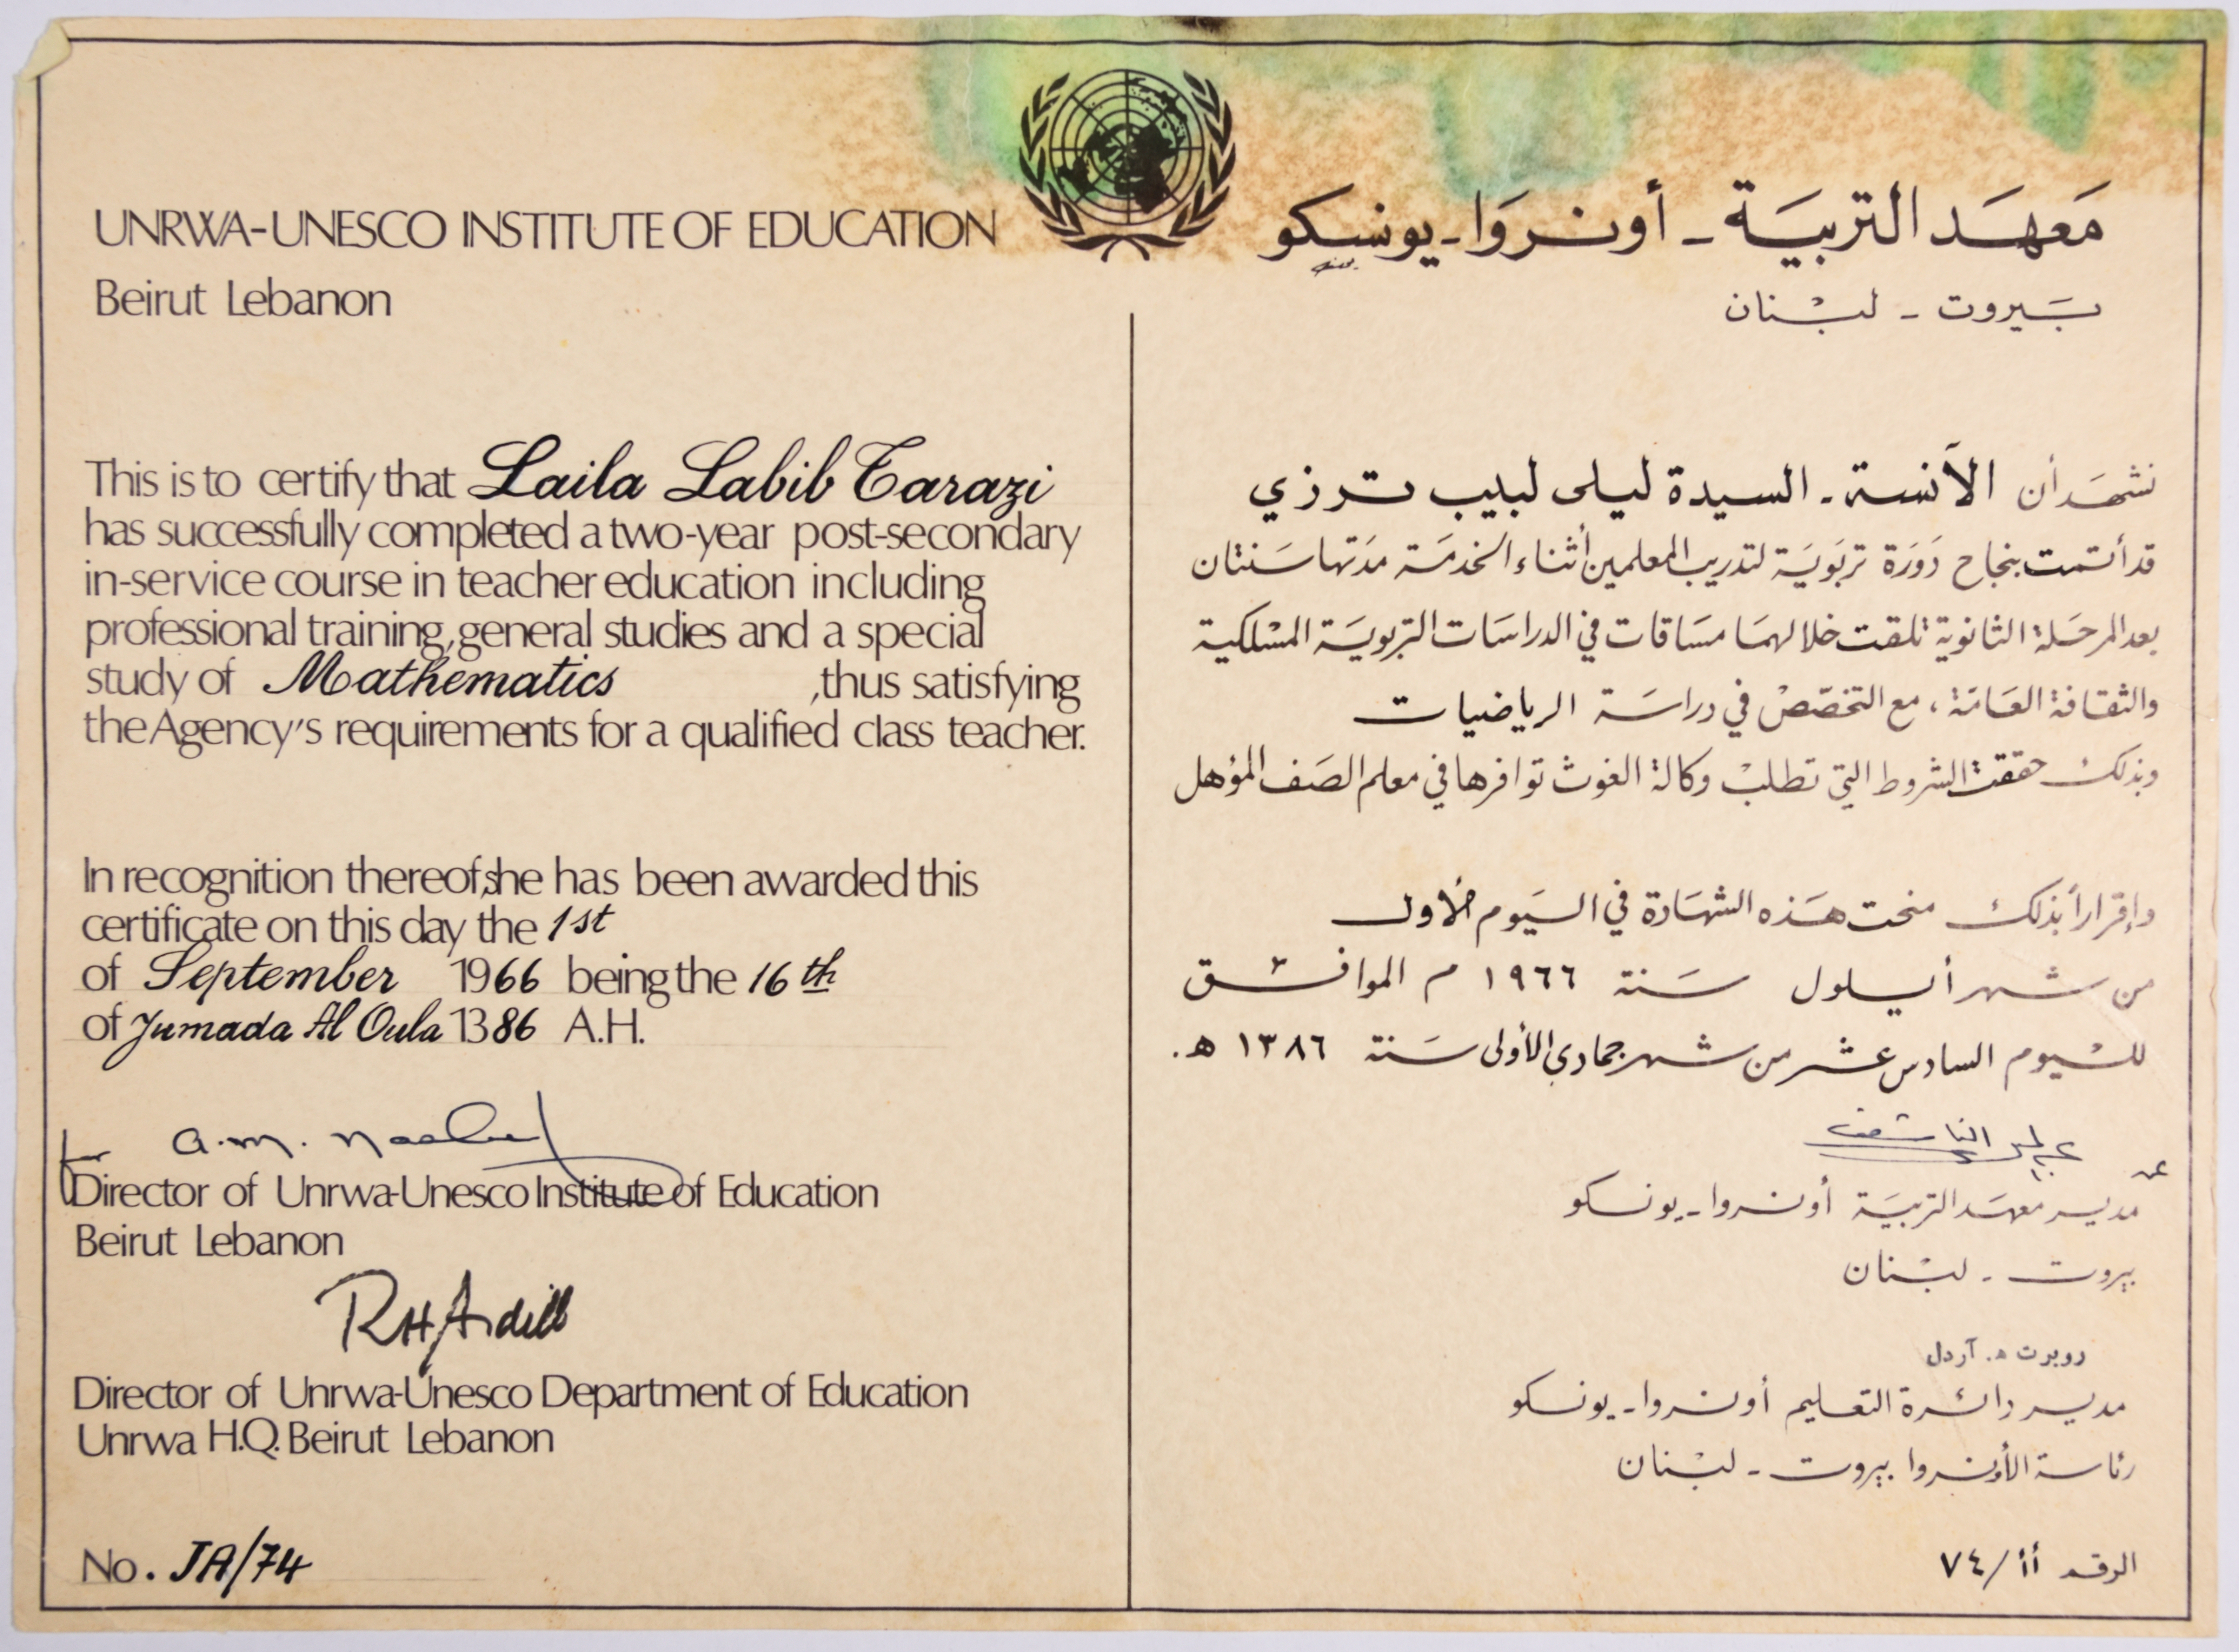 UNRWA-UNESCO INSTITUTE OF EDUCATION
Beirut Lebanon
This is to certify that Laila Labib Tarazi
has successfully completed a two-year post-secondary
in-service course in teacher education including
professional training, general studies and a special
study of Mathematics ,thus satisfying
the Agency's requirements for a qualified class teacher.
In recognition thereof, she has been awarded this
certificate on this day the 1st
of September 1966 being the 16th
of Jumada Al Oula 1386 A.H.
for a.m. Nashef
Director of Unrwa-Unesco Institute of Education
Beirut Lebanon
RHArdill
Director of Unrwa-Unesco Department of Education
Unrwa H.Q. Beirut Lebanon
No. JA/74
مَعهَد التربيَة - أونروَا - يونسكو
بَيروت - لبْنان
نشهَد أن الآنسة - السيدة ليلى لبيب ترزي
قد أتمت بنجاح دَورَة تربَويَة لتدريب المعلمين أثناء الخدمَة مدَتها سَنتان
بعد المرحَلة الثانوية تلقت خلالهمَا مسَاقات في الدراسَات التربويَة المسْلكية
والثقافة العَامَة، مع التخصّصْ في دراسَة الرياضيات
وبذلك حققت الشروط التي تطلبْ وكالة الغوث توافرها في معلم الصَف المؤهل
وإقراراً بذلك منحت هَذه الشهَادة في اليَوم الأول
من شهر أيلول سَنة ١٩٦٦ م الموافق
لليْوم السادس عشر من شهر جمادي الأولى سَنة ١٣٨٦ ه.
الناشف
عن
مدير معهَد التربيَة أونروا - يونسكو
بيروت - لبْنان
روبرت ه. آردل
مدير دائرة التعليم أونروا - يونسكو
رئاسة الأونروا بيروت - لبْنان
الرقم أأ/٧٤